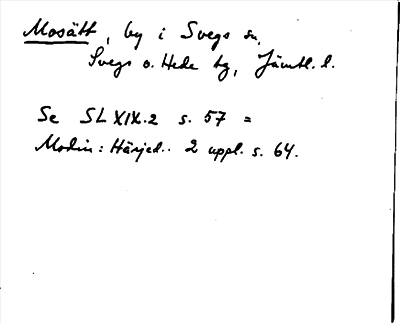 Mosätt, by i Svegs sn,
Svegs o. Hede tg, Jämtl. l.
Se SL XIX.2 s. 57 =
Modin: Härjed.. 2 uppl. s. 64.